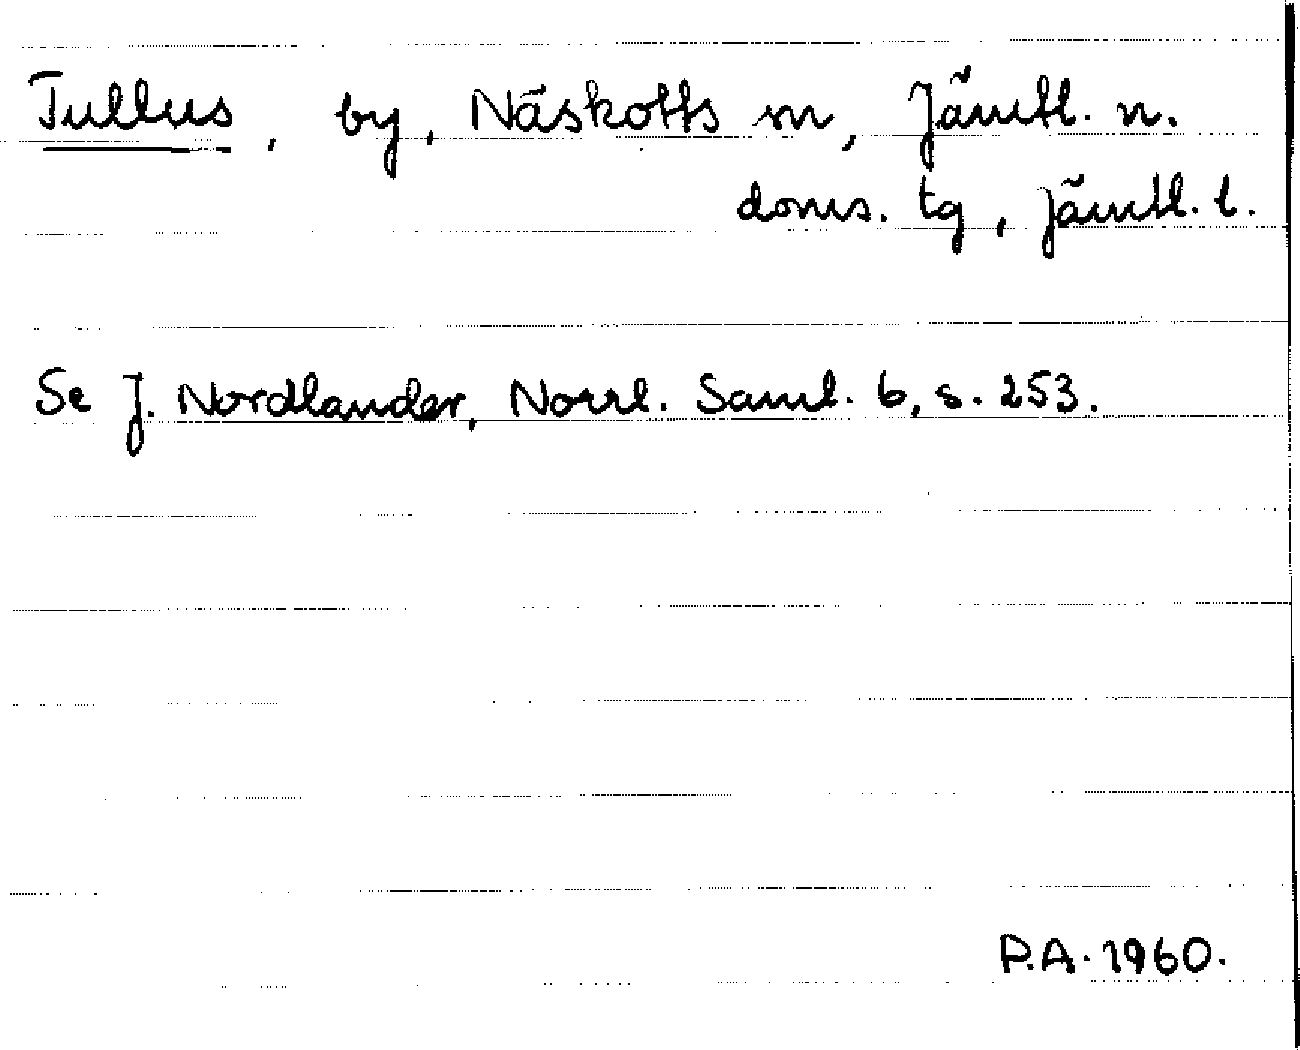 Tullus, by, Näskotts sn, Jämtl. n.
doms. tg, Jämtl. l.
Se J. Nordlander, Norrl. Saml. 6, s. 253.
P.A. 1960.